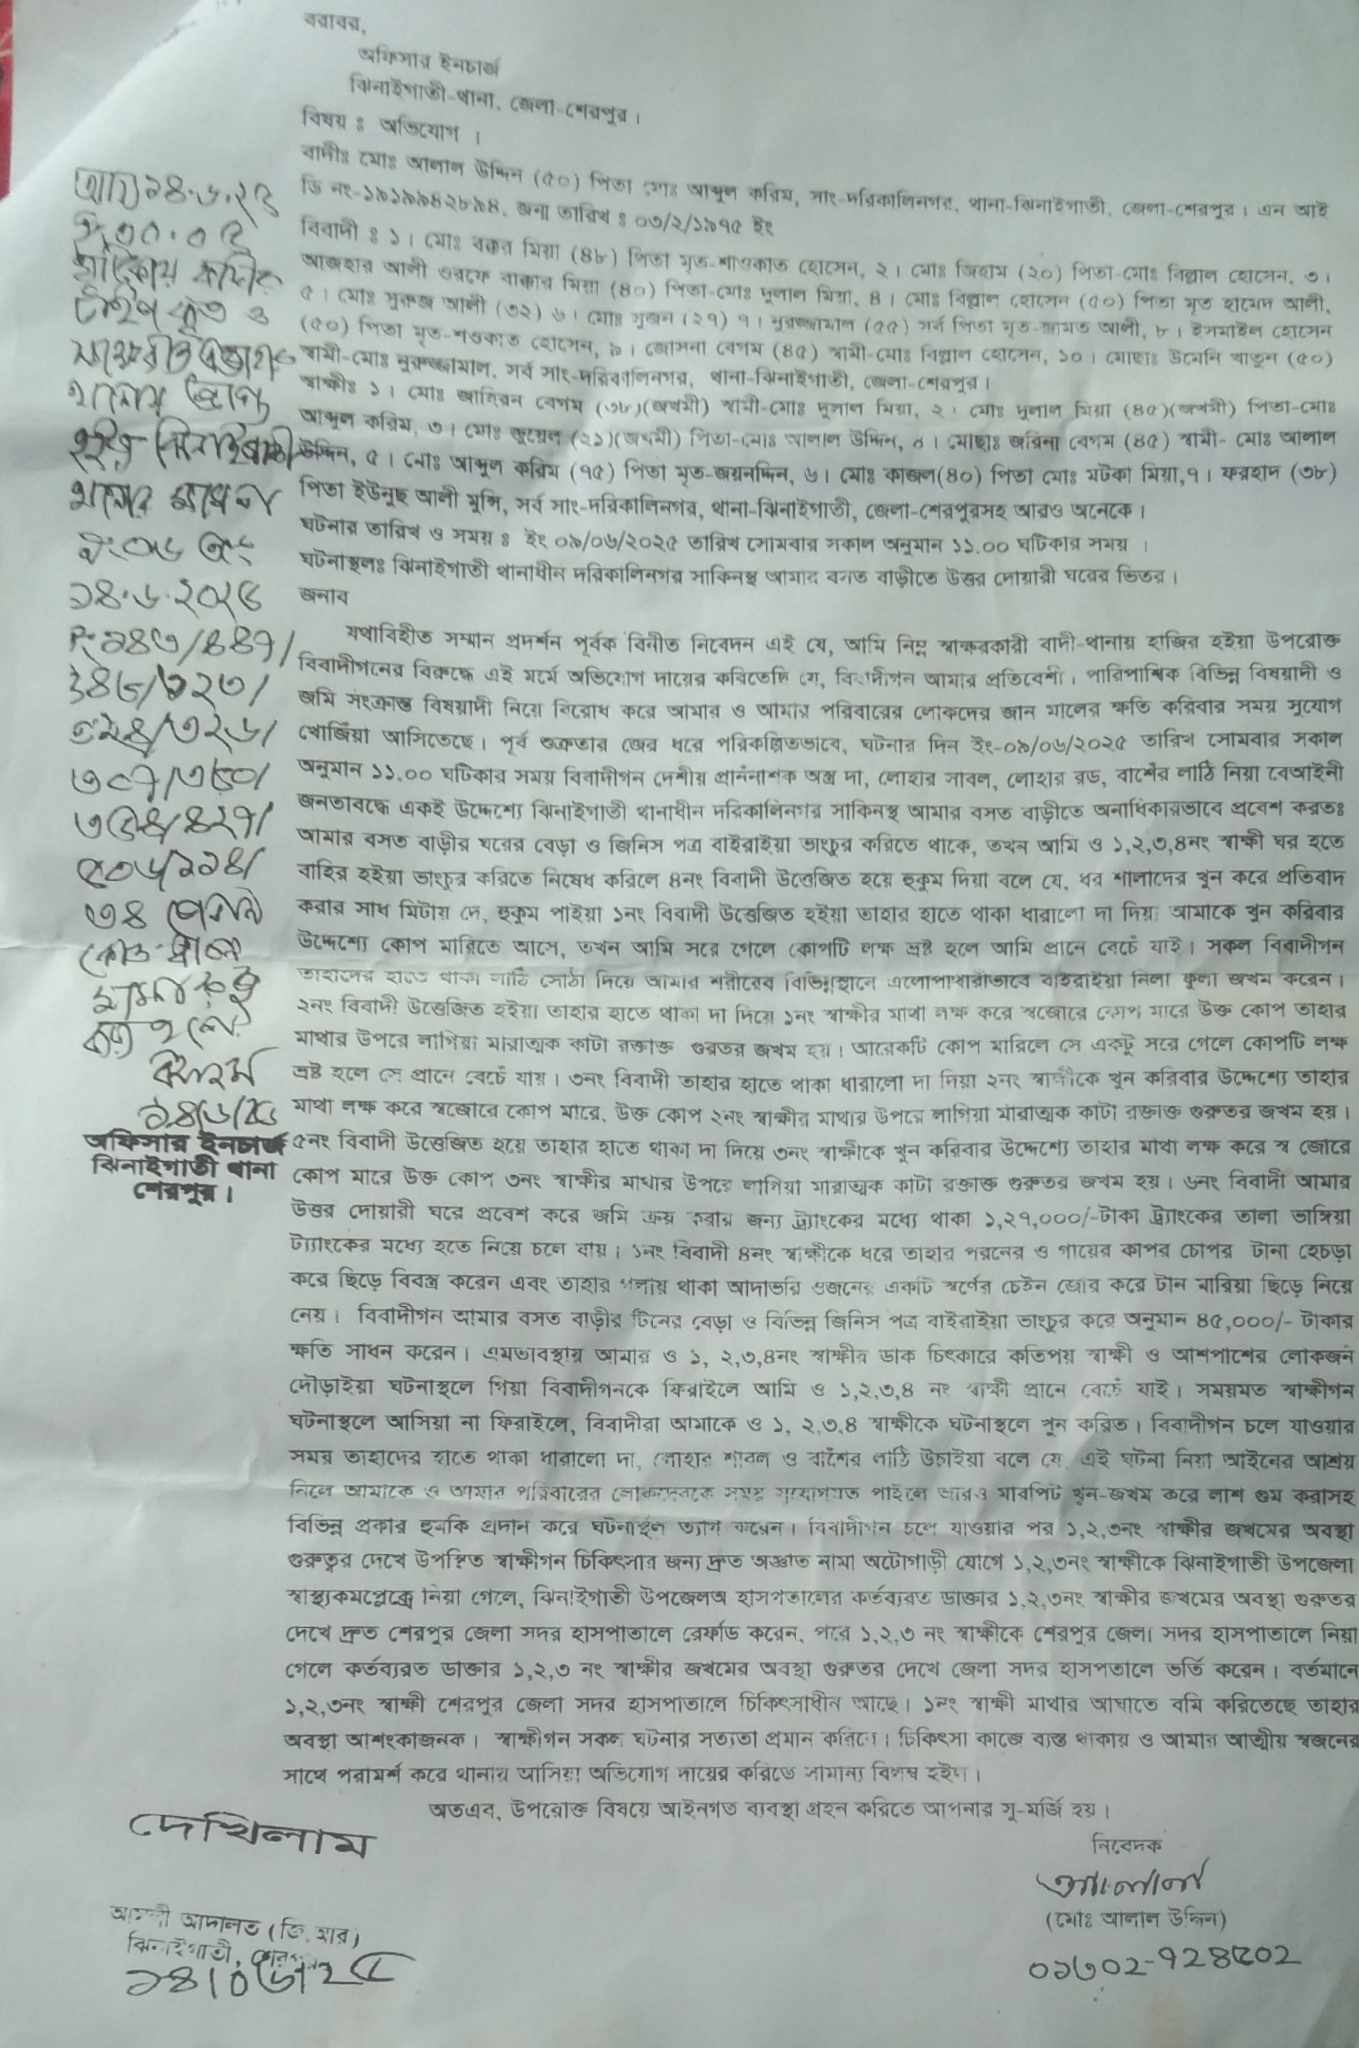 বরাবর,
অফিসার ইনচার্জ
ঝিনাইগাতী-থানা, জেলা-শেরপুর।
বিষয় ঃ অভিযোগ ।
বাদীঃ মোঃ আলাল উদ্দিন (৫০) পিতা মোঃ আব্দুল করিম, সাং-দরিকালিনগর, থানা-ঝিনাইগাতী, জেলা-শেরপুর। এন আই
ডি নং-১৯১৯৯৪২৮৯৪, জন্ম তারিখ ঃ ০৩/২/১৯৭৫ ইং
বিবাদী ঃ ১। মোঃ বক্কর মিয়া (৪৮) পিতা মৃত-শাওকাত হোসেন, ২। মোঃ জিহাম (২০) পিতা-মোঃ বিল্লাল হোসেন, ৩।
আজহার আলী ওরফে বাক্কার মিয়া (৪০) পিতা-মোঃ দুলাল মিয়া, ৪। মোঃ বিল্লাল হোসেন (৫০) পিতা মৃত হামেদ আলী,
৫। মোঃ সুরুজ আলী (৩২) ৬। মোঃ সুজন (২৭) ৭। নুরজ্জামাল (৫৫) সর্ব পিতা মৃত-জামত আলী, ৮। ইসমাইল হোসেন
(৫০) পিতা মৃত-শওকাত হোসেন, ৯। জোসনা বেগম (৪৫) স্বামী-মোঃ বিল্লাল হোসেন, ১০। মোছাঃ উমেনি খাতুন (৫০)
স্বামী-মোঃ নুরুজ্জামাল, সর্ব সাং-দরিকালিনগর, থানা-ঝিনাইগাতী, জেলা-শেরপুর।
স্বাক্ষীঃ ১। মোঃ জামিরন বেগম (৩৮)(জখমী) স্বামী-মোঃ দুলাল মিয়া, ২। মোঃ দুলাল মিয়া (৪৫)(জখমী) পিতা-মোঃ
আব্দুল করিম, ৩। মোঃ জুয়েল (২১)(জখমী) পিতা-মোঃ আলাল উদ্দিন, ৪। মোছাঃ জরিনা বেগম (৪৫) স্বামী- মোঃ আলাল
উদ্দিন, ৫। মোঃ আব্দুল করিম (৭৫) পিতা মৃত-জয়নদ্দিন, ৬। মোঃ কাজল(৪০) পিতা মোঃ মটকা মিয়া,৭। ফরহাদ (৩৮)
পিতা ইউনুছ আলী মুন্সি, সর্ব সাং-দরিকালিনগর, থানা-ঝিনাইগাতী, জেলা-শেরপুরসহ আরও অনেকে।
ঘটনার তারিখ ও সময় ঃ ইং ০৯/০৬/২০২৫ তারিখ সোমবার সকাল অনুমান ১১.০০ ঘটিকার সময় ।
ঘটনাস্থলঃ ঝিনাইগাতী থানাধীন দরিকালিনগর সাকিনস্থ আমার বসত বাড়ীতে উত্তর দোয়ারী ঘরের ভিতর।
জনাব
যথাবিহীত সম্মান প্রদর্শন পূর্বক বিনীত নিবেদন এই যে, আমি নিম্ন স্বাক্ষরকারী বাদী-থানায় হাজির হইয়া উপরোক্ত
বিবাদীগনের বিরুদ্ধে এই মর্মে অভিযোগ দায়ের করিতেছি যে, বিবাদীগন আমার প্রতিবেশী। পারিপার্শ্বিক বিভিন্ন বিষয়াদী ও
জমি সংক্রান্ত বিষয়াদী নিয়ে বিরোধ করে আমার ও আমার পরিবারের লোকদের জান মালের ক্ষতি করিবার সময় সুযোগ
খোজিঁয়া আসিতেছে। পূর্ব শুত্রুতার জের ধরে পরিকল্পিতভাবে, ঘটনার দিন ইং-০৯/০৬/২০২৫ তারিখ সোমবার সকাল
অনুমান ১১.০০ ঘটিকার সময় বিবাদীগন দেশীয় প্রাননাশক অস্ত্র দা, লোহার সাবল, লোহার রড, বাশেঁর লাঠি নিয়া বেআইনী
জনতাবদ্ধে একই উদ্দেশ্যে ঝিনাইগাতী থানাধীন দরিকালিনগর সাকিনস্থ আমার বসত বাড়ীতে অনাধিকারভাবে প্রবেশ করতঃ
আমার বসত বাড়ীর ঘরের বেড়া ও জিনিস পত্র বাইরাইয়া ভাংচুর করিতে থাকে, তখন আমি ও ১,২,৩,৪নং স্বাক্ষী ঘর হতে
বাহির হইয়া ভাংচুর করিতে নিষেধ করিলে ৪নং বিবাদী উত্তেজিত হয়ে হুকুম দিয়া বলে যে, ধর শালাদের খুন করে প্রতিবাদ
করার সাধ মিটায় দে, হুকুম পাইয়া ১নং বিবাদী উত্তেজিত হইয়া তাহার হাতে থাকা ধারালো দা দিয়া আমাকে খুন করিবার
উদ্দেশ্যে কোপ মারিতে আসে, তখন আমি সরে গেলে কোপটি লক্ষ ভ্রষ্ট হলে আমি প্রানে বেচেঁ যাই। সকল বিবাদীগন
তাহাদের হাতে থাকা লাঠি সোঠা দিয়ে আমার শরীরের বিভিন্নস্থানে এলোপাথারীভাবে বাইরাইয়া নিলা ফুলা জখম করেন।
২নং বিবাদী উত্তেজিত হইয়া তাহার হাতে থাকা দা দিয়ে ১নং স্বাক্ষীর মাথা লক্ষ করে স্বজোরে কোপ মারে উক্ত কোপ তাহার
মাথার উপরে লাগিয়া মারাত্মক কাটা রক্তাক্ত গুরতর জখম হয়। আরেকটি কোপ মারিলে সে একটু সরে গেলে কোপটি লক্ষ
ভ্রষ্ট হলে সে প্রানে বেচেঁ যায়। ৩নং বিবাদী তাহার হাতে থাকা ধারালো দা দিয়া ২নং স্বাক্ষীকে খুন করিবার উদ্দেশ্যে তাহার
মাথা লক্ষ করে স্বজোরে কোপ মারে, উক্ত কোপ ২নং স্বাক্ষীর মাথার উপরে লাগিয়া মারাত্মক কাটা রক্তাক্ত গুরুতর জখম হয়।
৫নং বিবাদী উত্তেজিত হয়ে তাহার হাতে থাকা দা দিয়ে ৩নং স্বাক্ষীকে খুন করিবার উদ্দেশ্যে তাহার মাথা লক্ষ করে স্ব জোরে
কোপ মারে উক্ত কোপ ৩নং স্বাক্ষীর মাথার উপরে লাগিয়া মারাত্মক কাটা রক্তাক্ত গুরুতর জখম হয়। ৬নং বিবাদী আমার
উত্তর দোয়ারী ঘরে প্রবেশ করে জমি ক্রয় করার জন্য ট্র্যাংকের মধ্যে থাকা ১,২৭,০০০/-টাকা ট্র্যাংকের তালা ভাঙ্গিয়া
ট্যাংকের মধ্যে হতে নিয়ে চলে যায়। ১নং বিবাদী ৪নং স্বাক্ষীকে ধরে তাহার পরনের ও গায়ের কাপর চোপর টানা হেচড়া
করে ছিড়ে বিবস্ত্র করেন এবং তাহার গলায় থাকা আদাভরি ওজনের একটি স্বর্ণের চেইন জোর করে টান মারিয়া ছিড়ে নিয়ে
নেয়। বিবাদীগন আমার বসত বাড়ীর টিনের বেড়া ও বিভিন্ন জিনিস পত্র বাইরাইয়া ভাংচুর করে অনুমান ৪৫,০০০/- টাকার
ক্ষতি সাধন করেন। এমতাবস্থায় আমার ও ১, ২,৩,৪নং স্বাক্ষীর ডাক চিৎকারে কতিপয় স্বাক্ষী ও আশপাশের লোকজন
দৌড়াইয়া ঘটনাস্থলে গিয়া বিবাদীগনকে ফিরাইলে আমি ও ১,২,৩,৪ নং স্বাক্ষী প্রানে বেচেঁ যাই। সময়মত স্বাক্ষীগন
ঘটনাস্থলে আসিয়া না ফিরাইলে, বিবাদীরা আমাকে ও ১, ২,৩,৪ স্বাক্ষীকে ঘটনাস্থলে খুন করিত। বিবাদীগন চলে যাওয়ার
সময় তাহাদের হাতে থাকা ধারালো দা, লোহার শাবল ও বাশেঁর লাঠি উচাইয়া বলে যে, এই ঘটনা নিয়া আইনের আশ্রয়
নিলে আমাকে ও আমার পরিবারের লোকদেরকে সময় সুযোগমত পাইলে আরও মারপিট খুন-জখম করে লাশ গুম করাসহ
বিভিন্ন প্রকার হুমকি প্রদান করে ঘটনাস্থল ত্যাগ করেন। বিবাদীগন চলে যাওয়ার পর ১,২,৩নং স্বাক্ষীর জখমের অবস্থা
গুরুত্বর দেখে উপস্থিত স্বাক্ষীগন চিকিৎসার জন্য দ্রুত অজ্ঞাত নামা অটোগাড়ী যোগে ১,২,৩নং স্বাক্ষীকে ঝিনাইগাতী উপজেলা
স্বাস্থ্যকমপ্লেক্সে নিয়া গেলে, ঝিনাইগাতী উপজেলঅ হাসপতালের কর্তব্যরত ডাক্তার ১,২,৩নং স্বাক্ষীর জখমের অবস্থা গুরুতর
দেখে দ্রুত শেরপুর জেলা সদর হাসপাতালে রেফাঁড করেন, পরে ১,২,৩ নং স্বাক্ষীকে শেরপুর জেলা সদর হাসপাতালে নিয়া
গেলে কর্তব্যরত ডাক্তার ১,২,৩ নং স্বাক্ষীর জখমের অবস্থা গুরুতর দেখে জেলা সদর হাসপতালে ভর্তি করেন। বর্তমানে
১,২,৩নং স্বাক্ষী শেরপুর জেলা সদর হাসপাতালে চিকিৎসাধীন আছে। ১নং স্বাক্ষী মাথার আঘাতে বমি করিতেছে তাহার
অবস্থা আশংকাজনক। স্বাক্ষীগন সকল ঘটনার সত্যতা প্রমান করিবে। চিকিৎসা কাজে ব্যস্ত থাকায় ও আমার আত্মীয় স্বজনের
সাথে পরামর্শ করে থানায় আসিয়া অভিযোগ দায়ের করিতে সামান্য বিলম্ব হইল।
অতএব, উপরোক্ত বিষয়ে আইনগত ব্যবস্থা গ্রহন করিতে আপনার সু-মর্জি হয়।
নিবেদক
আলাল
(মোঃ আলাল উদ্দিন)
০১৩০২-৭২৪৫০২
১৪.৬.২০২৫
১৪/৬/২৫
অফিসার ইনচার্জ
ঝিনাইগাতী থানা
শেরপুর।
দেখিলাম
আমলী আদালত (জি.আর)
ঝিনাইগাতী, শেরপুর
১৪/০৬/২৫